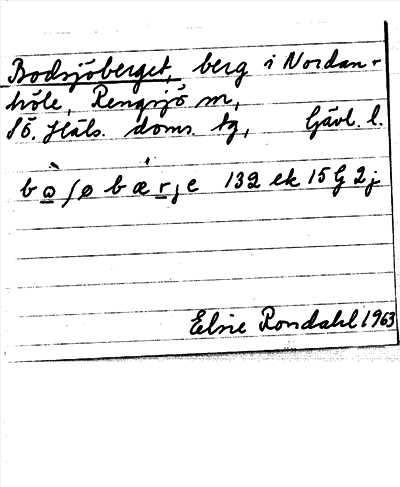 Bodsjöberget, berg i Nordan-
höle, Rengsjö sn,
Sö. Häls. doms. tg, Gävl. l.
bò̲ʃø bæ̀r̲je 132 ek 15G 2j
Elsie Rondahl 1963